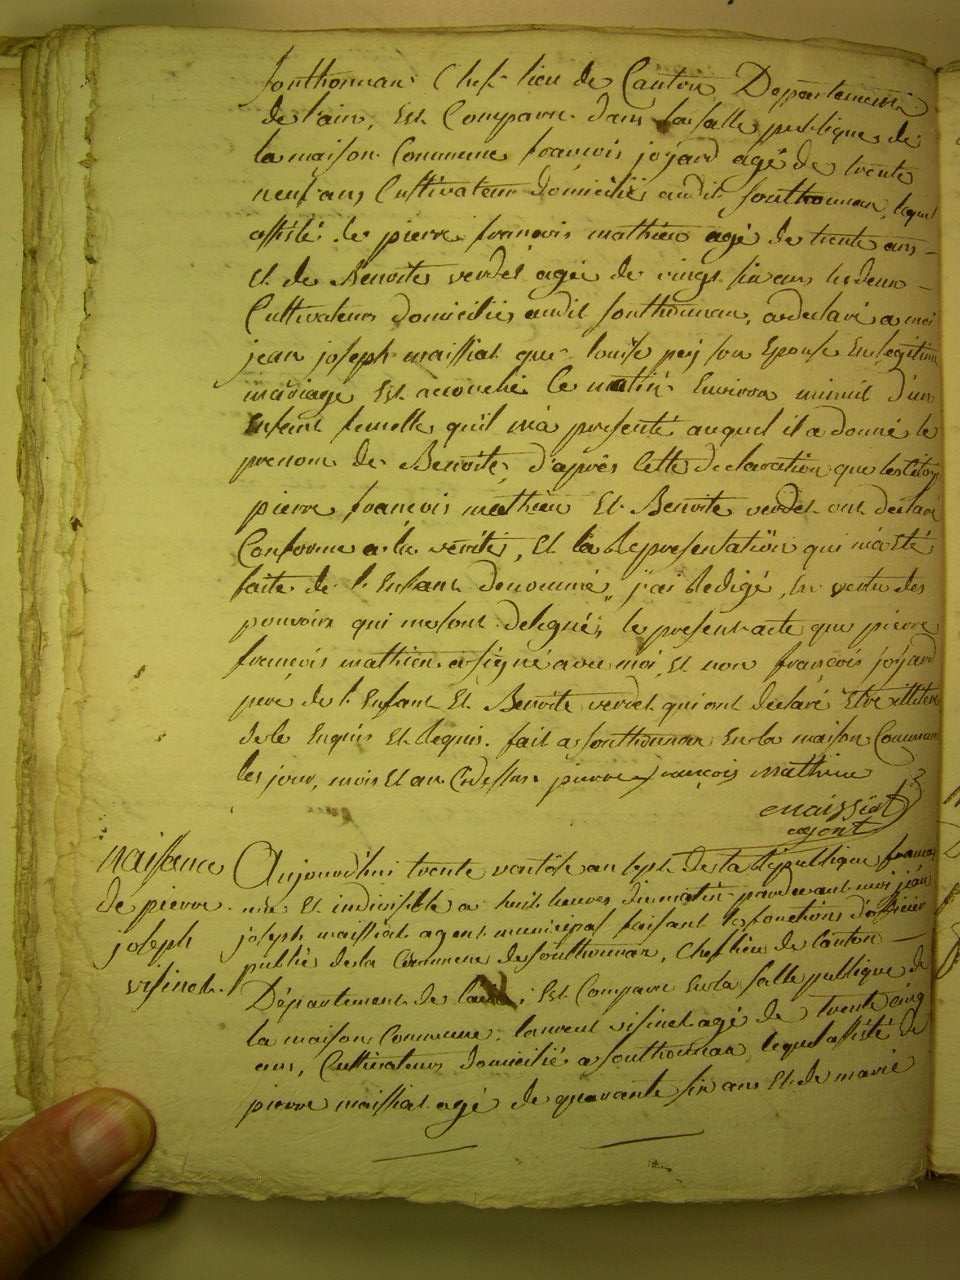 Sonthonnax Chef lieu de Canton Departement
de l'ain, Est Comparu dans la salle publique de
la maison Commune françois joÿard agé de trente
neuf ans Cultivateur domicilié audit Sonthonnax, lequel
assisté de pierre françois mathieu agé de trente ans
Et de Benoite verdet agée de vingt six ans les deux
Cultivateurs domiciliés audit Sonthonnax, a declaré a moi
jean joseph maissiat que louise peÿ son Epouse En legitime
mariage Est accouché le matin Environ minuit d'un
Enfant femelle qu'il m'a presenté auquel il a donné le
prenom de Benoite, d'après Cette declaration que les Citoÿ
pierre françois mathieu Et Benoite verdet ont declaré
Conforme a la vérité, Et la Representation qui m'a Eté
faite de l'Enfant denommé, j'ai Redigé, En vertu des
pouvoirs qui me sont delegué, le present acte que pierre
françois mathieu a signé avec moi, Et non françois joÿard
pere de l'Enfant Et Benoite verdet qui ont declaré Etre illiteré
de le Enquis Et Requis. fait a Sonthonnax En la maison Commune
les jour, mois Et an Cidessus. pierre françois mathieu
maissiat
agent
naissance
de pierre
joseph
visinet.
Aujourd'hui trente ventôse an sept de la République francai
une Et indivisible a huit heures du matin pardevant moi jean
joseph maissiat agent municipal faisant les fonctions d'officier
public de la Commune de Sonthonnax, Chef lieu de Canton
Département de l'ain, Est Comparu En la salle publique de
la maison Commune, laurent visinet agé de trente cinq
ans, Cultivateur domicilié a Sonthonnax, lequel assisté de
pierre maissiat agé de quarante six ans Et de marie